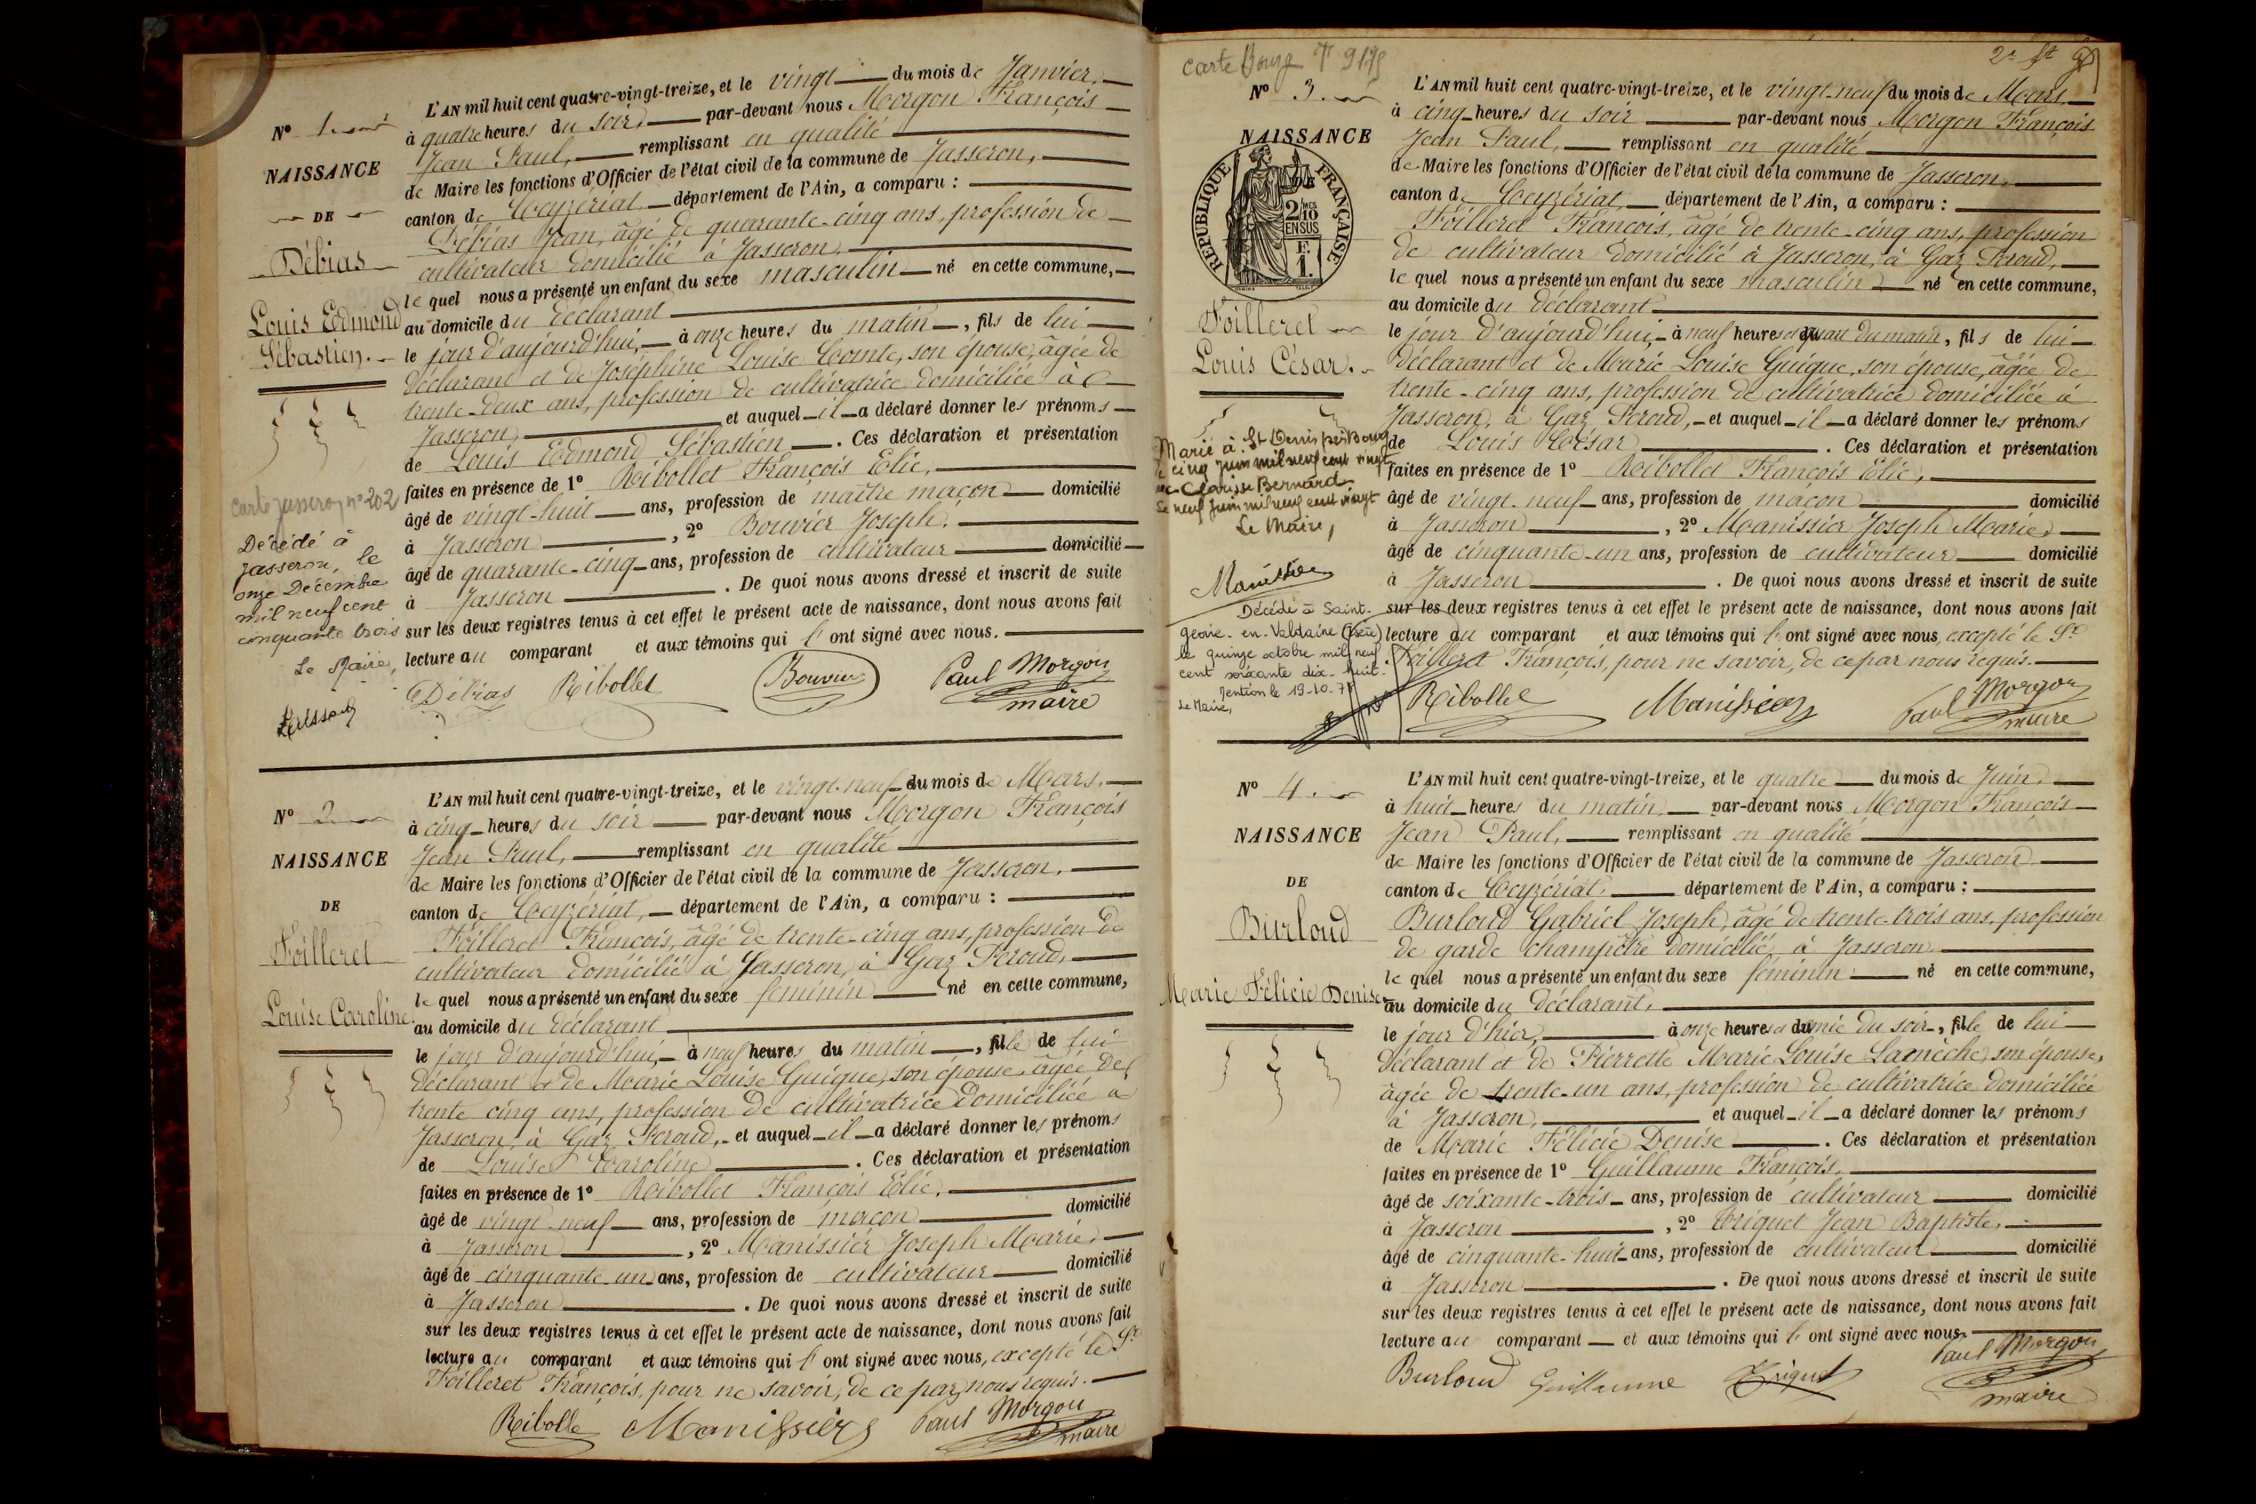 N° 1.
NAISSANCE
DE
Débias
Louis Edmond
Sébastien.
carte Jasseron n° 202
Décédé à
Jasseron, le
onze Décembre
mil neuf cent
cinquante trois
Le Maire,
L'AN mil huit cent quatre-vingt-treize, et le vingt du mois de Janvier,
à quatre heures du soir, par-devant nous Morgon François
Jean Paul, remplissant en qualité
de Maire les fonctions d'Officier de l'état civil de la commune de Jasseron,
canton de Ceyzériat département de l'Ain, a comparu :
Débias Jean, âgé de quarante-cinq ans, profession de
cultivateur domicilié à Jasseron,
le quel nous a présenté un enfant du sexe masculin né en cette commune,
au domicile du déclarant
le jour d'aujourd'hui, à onze heures du matin, fils de lui
déclarant et de Joséphine Louise Comte, son épouse, âgée de
trente-deux ans, profession de cultivatrice domiciliée à
Jasseron, et auquel il a déclaré donner les prénoms
de Louis Edmond Sébastien. Ces déclaration et présentation
faites en présence de 1° Ribollet François Elie,
âgé de vingt-huit ans, profession de maître maçon domicilié
à Jasseron, 2° Bouvier Joseph,
âgé de quarante-cinq ans, profession de cultivateur domicilié
à Jasseron. De quoi nous avons dressé et inscrit de suite
sur les deux registres tenus à cet effet le présent acte de naissance, dont nous avons fait
lecture au comparant et aux témoins qui l'ont signé avec nous.
Débias Ribollet Bouvier Paul Morgon
maire
N° 2
NAISSANCE
DE
Foilleret
Louise Caroline.
L'AN mil huit cent quatre-vingt-treize, et le vingt-neuf du mois de Mars,
à cinq heures du soir par-devant nous Morgon François
Jean Paul, remplissant en qualité
de Maire les fonctions d'Officier de l'état civil de la commune de Jasseron,
canton de Ceyzériat, département de l'Ain, a comparu :
Foilleret François, âgé de trente-cinq ans, profession de
cultivateur domicilié à Jasseron, à Gaz Feroud,
le quel nous a présenté un enfant du sexe féminin né en cette commune,
au domicile du déclarant
le jour d'aujourd'hui, à neuf heures du matin, fille de lui
déclarant et de Marie Louise Guigue, son épouse, âgée de
trente cinq ans, profession de cultivatrice domiciliée à
Jasseron, à Gaz Feroud, et auquel il a déclaré donner les prénoms
de Louise Caroline. Ces déclaration et présentation
faites en présence de 1° Ribollet François Elie,
âgé de vingt-neuf ans, profession de maçon domicilié
à Jasseron, 2° Manissier Joseph Marie,
âgé de cinquante-un ans, profession de cultivateur domicilié
à Jasseron. De quoi nous avons dressé et inscrit de suite
sur les deux registres tenus à cet effet le présent acte de naissance, dont nous avons fait
lecture au comparant et aux témoins qui l'ont signé avec nous, excepté le Sr
Foilleret François, pour ne savoir, de ce par nous requis.
Ribolle Manissier Paul Morgon
maire
carte Bourg
2e ft
N° 3.
NAISSANCE
DE
RÉPUBLIQUE FRANÇAISE
2/10 EN SUS
F.
1.
Foilleret
Louis César.
Marié à St Denis près Bourg
le cinq juin mil neuf cent vingt
avec Clarisse Bernard
Le neuf juin mil neuf cent vingt
Le Maire,
Manissier
Décédé à Saint-
geoire-en-Valdaine (Isère)
le quinze octobre mil neuf
cent soixante dix-huit.
Mention le 19-10-78
Le Maire,
L'AN mil huit cent quatre-vingt-treize, et le vingt-neuf du mois de Mars,
à cinq heures du soir par-devant nous Morgon François
Jean Paul, remplissant en qualité
de Maire les fonctions d'Officier de l'état civil de la commune de Jasseron,
canton de Ceyzériat, département de l'Ain, a comparu :
Foilleret François, âgé de trente-cinq ans, profession
de cultivateur domicilié à Jasseron, à Gaz Feroud,
le quel nous a présenté un enfant du sexe masculin né en cette commune,
au domicile du déclarant
le jour d'aujourd'hui, à neuf heures et quart du matin, fils de lui
déclarant et de Marie Louise Guigue, son épouse, âgée de
trente-cinq ans, profession de cultivatrice domiciliée à
Jasseron, à Gaz Feroud, et auquel il a déclaré donner les prénoms
de Louis César. Ces déclaration et présentation
faites en présence de 1° Ribollet François Elie,
âgé de vingt-neuf ans, profession de maçon domicilié
à Jasseron, 2° Manissier Joseph Marie,
âgé de cinquante-un ans, profession de cultivateur domicilié
à Jasseron. De quoi nous avons dressé et inscrit de suite
sur les deux registres tenus à cet effet le présent acte de naissance, dont nous avons fait
lecture au comparant et aux témoins qui l'ont signé avec nous, excepté le Sr
Foilleret François, pour ne savoir, de ce par nous requis.
Ribollet Manissier Paul Morgon
maire
N° 4.
NAISSANCE
DE
Burloud
Marie Félicie Denise
L'AN mil huit cent quatre-vingt-treize, et le quatre du mois de Juin,
à huit heures du matin, par-devant nous Morgon François
Jean Paul, remplissant en qualité
de Maire les fonctions d'Officier de l'état civil de la commune de Jasseron
canton de Ceyzériat, département de l'Ain, a comparu :
Burloud Gabriel Joseph, âgé de trente-trois ans, profession
de garde champêtre domicilié à Jasseron
le quel nous a présenté un enfant du sexe féminin né en cette commune,
au domicile du déclarant,
le jour d'hier, à onze heures et demie du soir, fille de lui
déclarant et de Pierrette Marie Louise Lamèche, son épouse,
âgée de trente-un ans, profession de cultivatrice domiciliée
à Jasseron, et auquel il a déclaré donner les prénoms
de Marie Félicie Denise. Ces déclaration et présentation
faites en présence de 1° Guillaume François,
âgé de soixante-trois ans, profession de cultivateur domicilié
à Jasseron, 2° Triquet Jean Baptiste,
âgé de cinquante-huit ans, profession de cultivateur domicilié
à Jasseron. De quoi nous avons dressé et inscrit de suite
sur les deux registres tenus à cet effet le présent acte de naissance, dont nous avons fait
lecture au comparant et aux témoins qui l'ont signé avec nous.
Burloud Guillaume Triquet Paul Morgon
maire